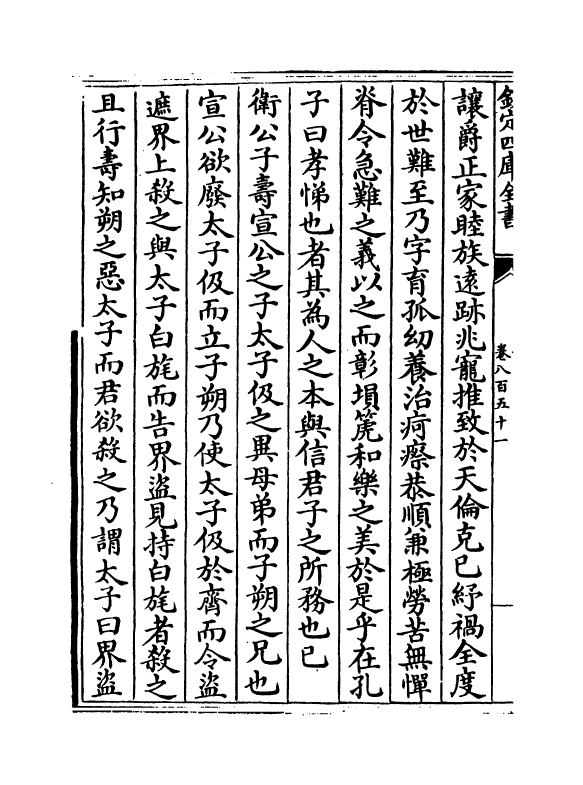 欽定四庫全書
卷八百五十一
讓爵正家睦族遠跡兆寵推致於天倫克已紓禍全度
於世難至乃字育孤幼養治疴瘵恭順兼極勞苦無憚
脊令急難之義以之而彰塤篪和樂之美於是乎在孔
子曰孝悌也者其為人之本與信君子之所務也已
衛公子壽宣公之子太子伋之異母弟而子朔之兄也
宣公欲廢太子伋而立子朔乃使太子伋於齊而令盜
遮界上殺之與太子白旄而告界盜見持白旄者殺之
且行壽知朔之惡太子而君欲殺之乃謂太子曰界盜